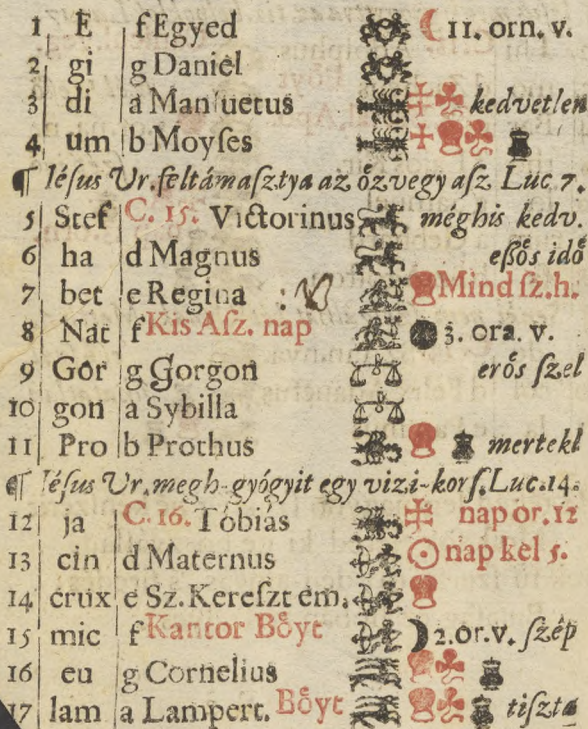 1 E f Egyed 11. orn. v.
2 gi g Daniel
3 di a Manſuetus kedvetlen
4 um b Moyſes
¶ Iéſus Ur. feltámaſztya az özvegy aſz Luc 7.
5 Stef C. 15. Victorinus méghis kedv.
6 ha d Magnus eſſős idő
7 bet e Regina Mind ſz. h.
8 Nat f Kis Aſz. nap 3. ora. v.
9 Gor g Gorgon erős ſzel
10 gon a Sybilla
11 Pro b Prothus mertekl
¶ Iéſus Ur. megh-gyógyit egy vizi-korſ. Luc. 14.
12 ja C. 16. Tobiás nap or. 12
13 cin d Maternus nap kel 5.
14 crux e Sz. Kereſzt em.
15 mic f Kantor Bőyt 2. or. v. ſzép
16 eu g Cornelius
17 lam a Lampert. Bőyt tiſzta